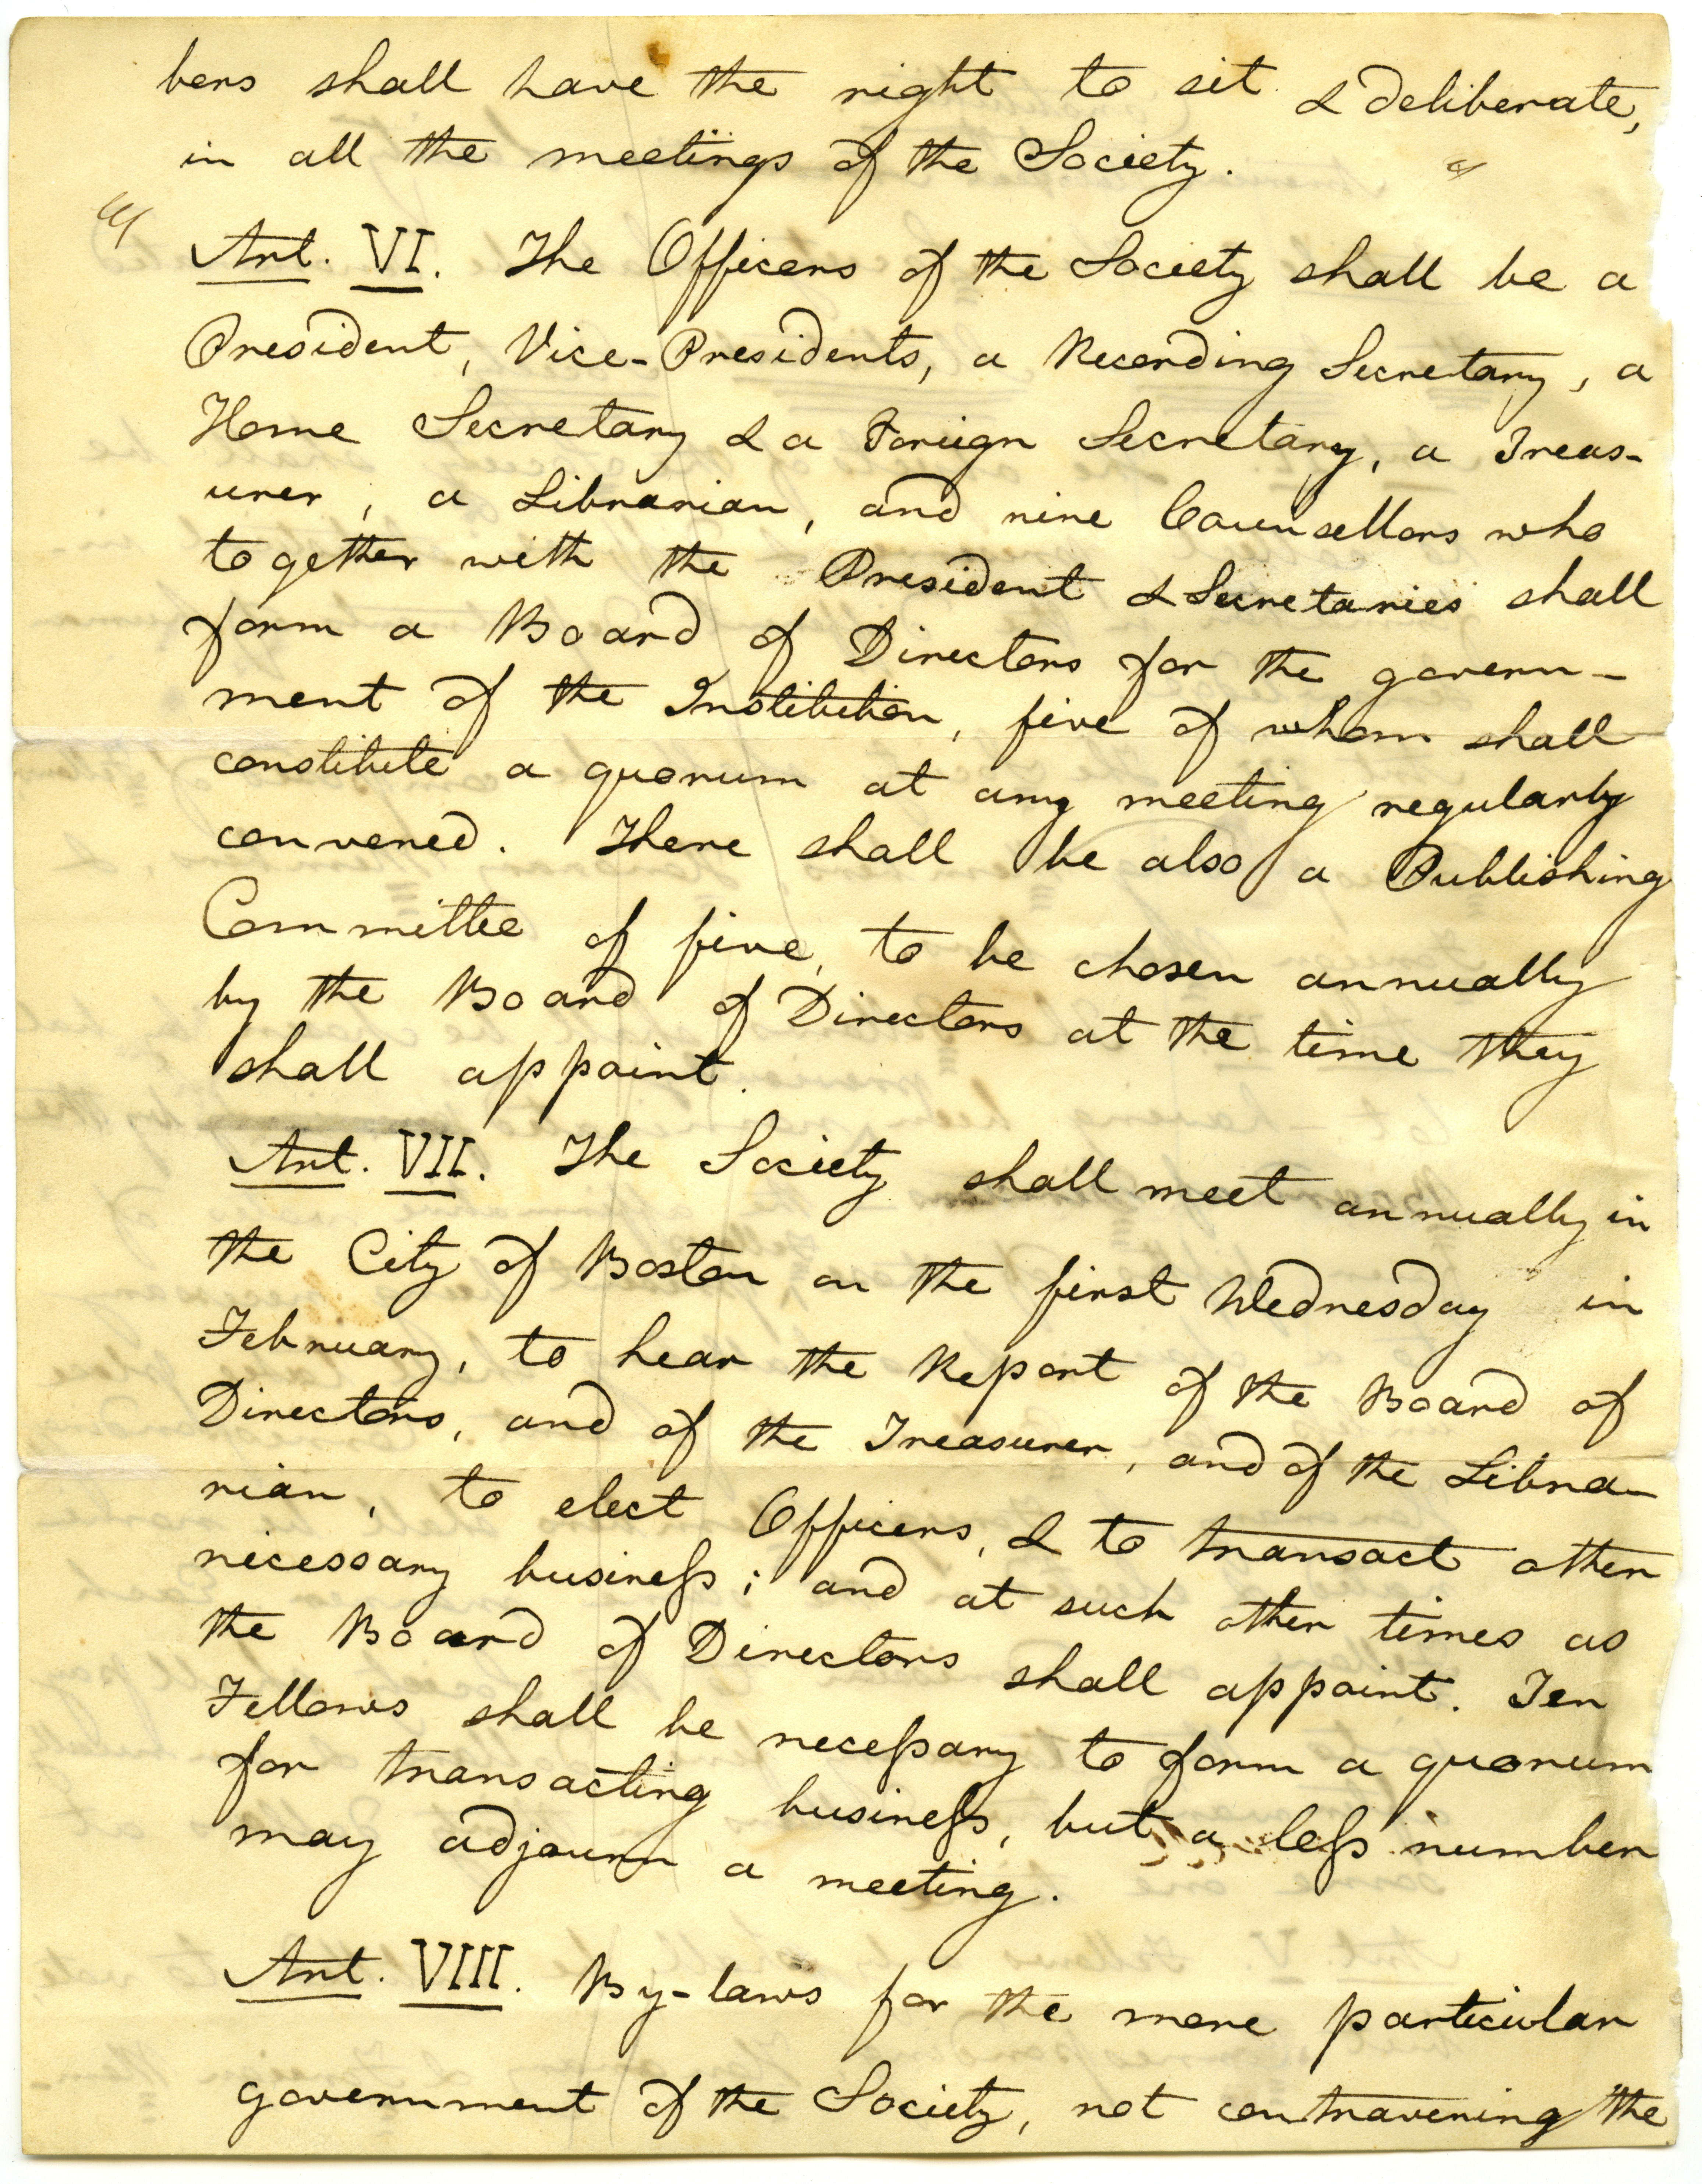 bers shall have the right to sit & deliberate,
in all the meetings of the Society.
Art. VI. The Officers of the Society shall be a
President, Vice-Presidents, a Recording Secretary, a
Home Secretary & a Foreign Secretary, a Treas-
urer, a Librarian, and nine Counsellors who
together with the President & Secretaries shall
form a Board of Directors for the govern-
ment of the Institution, five of whom shall
constitute a quorum at any meeting regularly
convened. There shall be also a Publishing
Committee of five, to be chosen annually
by the Board of Directors at the time they
shall appoint.
Art. VII. The Society shall meet annually in
the City of Boston on the first Wednesday in
February, to hear the Report of the Board of
Directors, and of the Treasurer, and of the Libra-
rian, to elect Officers, & to transact other
necessary busineſs; and at such other times as
the Board of Directors shall appoint. Ten
Fellows shall be neceſsary to form a quorum
for transacting busineſs, but a leſs number
may adjourn a meeting.
Art. VIII. By-laws for the more particular
government of the Society, not contravening the